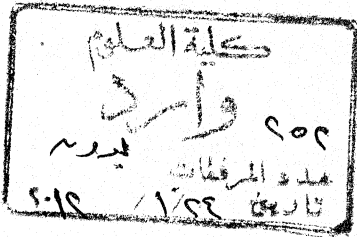 كلية العلوم
وارد
٢٥٢
عدد المرفقات بدون
تاريخ ٢٤ / ١ / ٢٠١٢